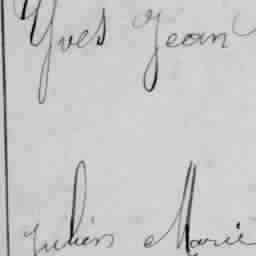 Yves Jean
Julien Marie